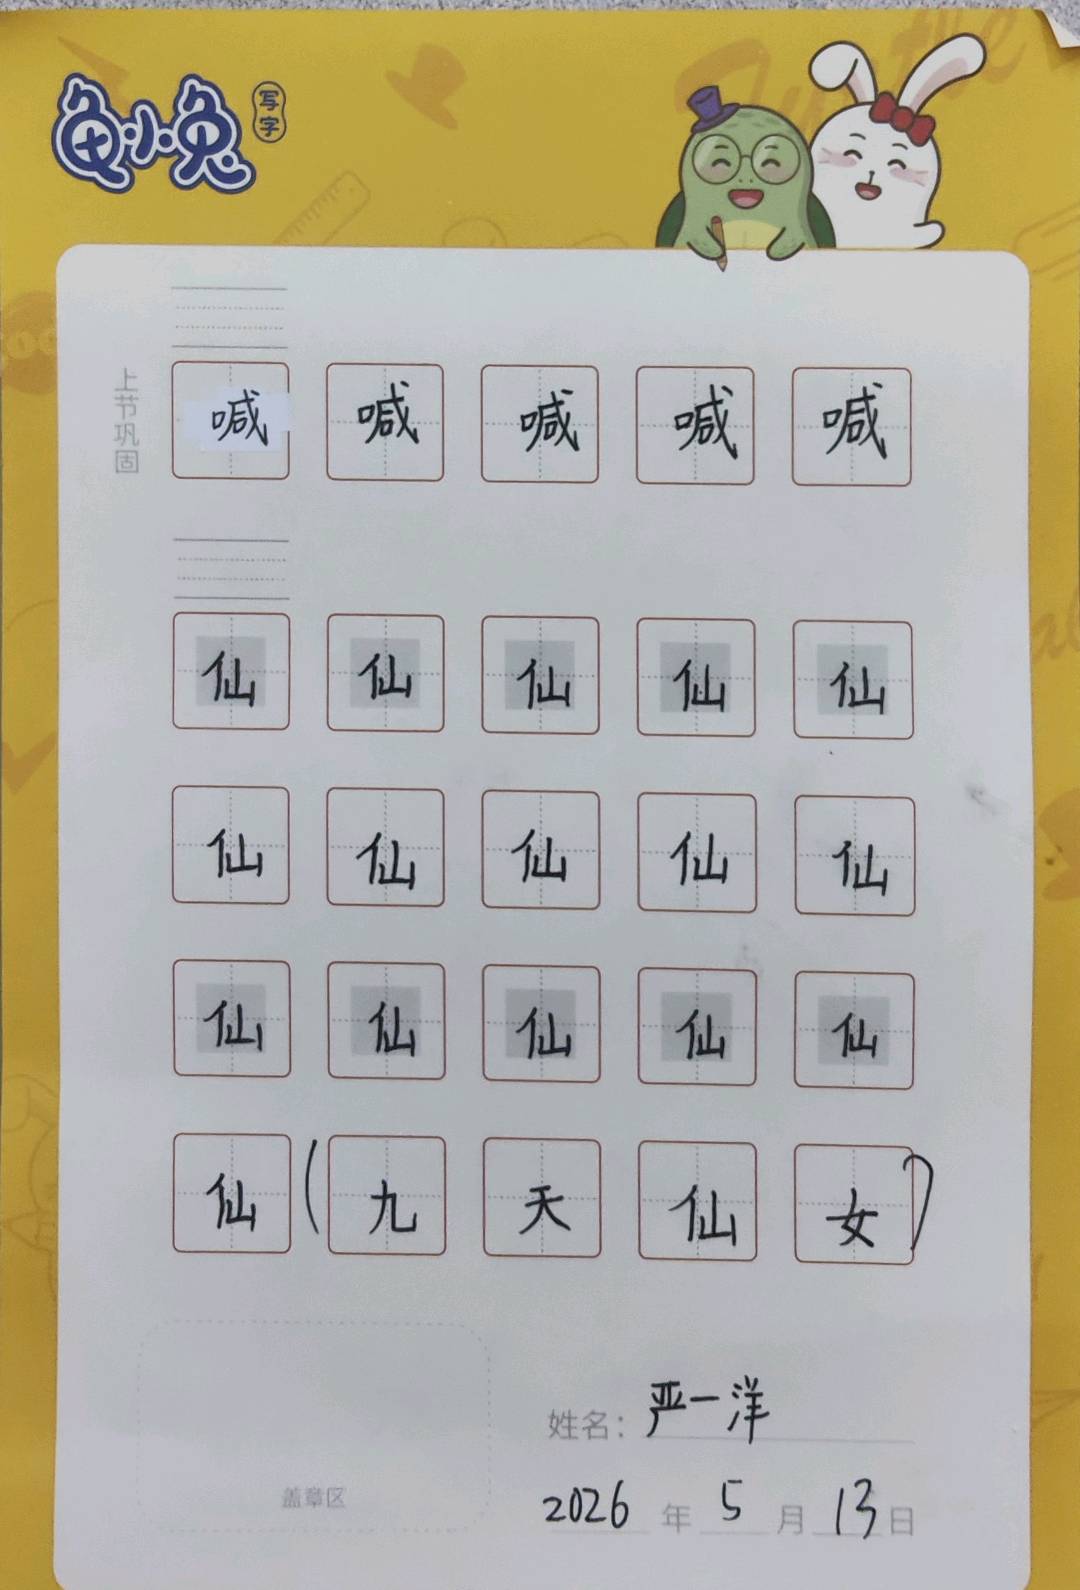 龟小兔 写字
上节巩固
喊 喊 喊 喊 喊
仙 仙 仙 仙 仙
仙 仙 仙 仙 仙
仙 仙 仙 仙 仙
仙 ( 九 天 仙 女 )
姓名: 严一洋
盖章区
2026 年 5 月 13 日